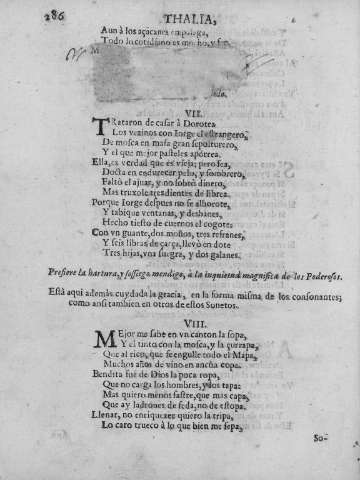 286 THALIA,
Aun à los açacanes empalaga,
Todo lo cotidiano es mucho, y feo,
M
VII.
TRataron de casar à Dorotea
Los vezinos con Iorge el estrangero,
De mosca en masa gran sepulturero,
Y el que mejor pasteles aporrea.
Ella, es verdad que es vieja; pero fea,
Docta en endurecer pelo, y sombrero,
Faltó el ajuar, y no sobrò dinero,
Mas truxole tres dientes de librea.
Porque Iorge despues no se alborote,
Y tabique ventanas, y desbanes,
Hecho tiesto de cuernos el cogote;
Con vn guante, dos moños, tres refranes,
Y seis libras de çarça, lleuò en dote
Tres hijas, vna suegra, y dos galanes.
Prefiere la hartura, y sossiego mendigo, à la inquietud magnifica de los Poderosos.
Està aqui ademàs cuydada la gracia, en la forma misma de los consonantes;
como ansi tambien en otros de estos Sonetos.
VIII.
MEjor me sabe en vn canton la sopa,
Y el tinto con la mosca, y la çurrapa,
Que al rico, que se engulle todo el Mapa,
Muchos años de vino en ancha copa.
Bendita fue de Dios la poca ropa,
Que no carga los hombres, y los tapa:
Mas quiero menos sastre, que mas capa,
Que ay ladrones de seda, no de estopa.
Llenar, no enriquezer quiero la tripa,
Lo caro trueco à lo que bien me sepa,
So-